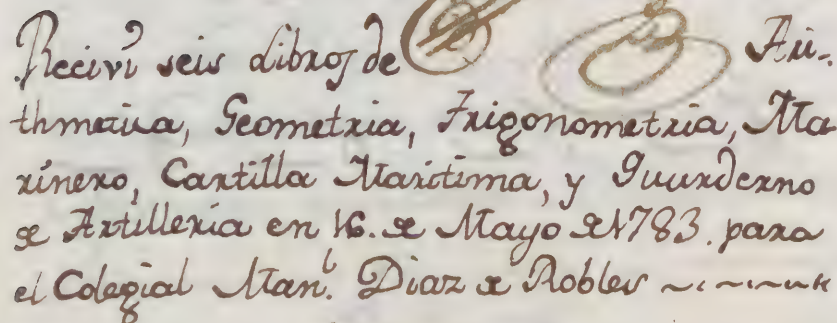 Recivi seis Libros de Ari-
thmetica, Geometria, Trigonometria, Ma
rinero, Cartilla Maritima, y Quarderno
de Artilleria en 16. de Mayo de 1783. para
el Colegial Man.l Diaz de Robles